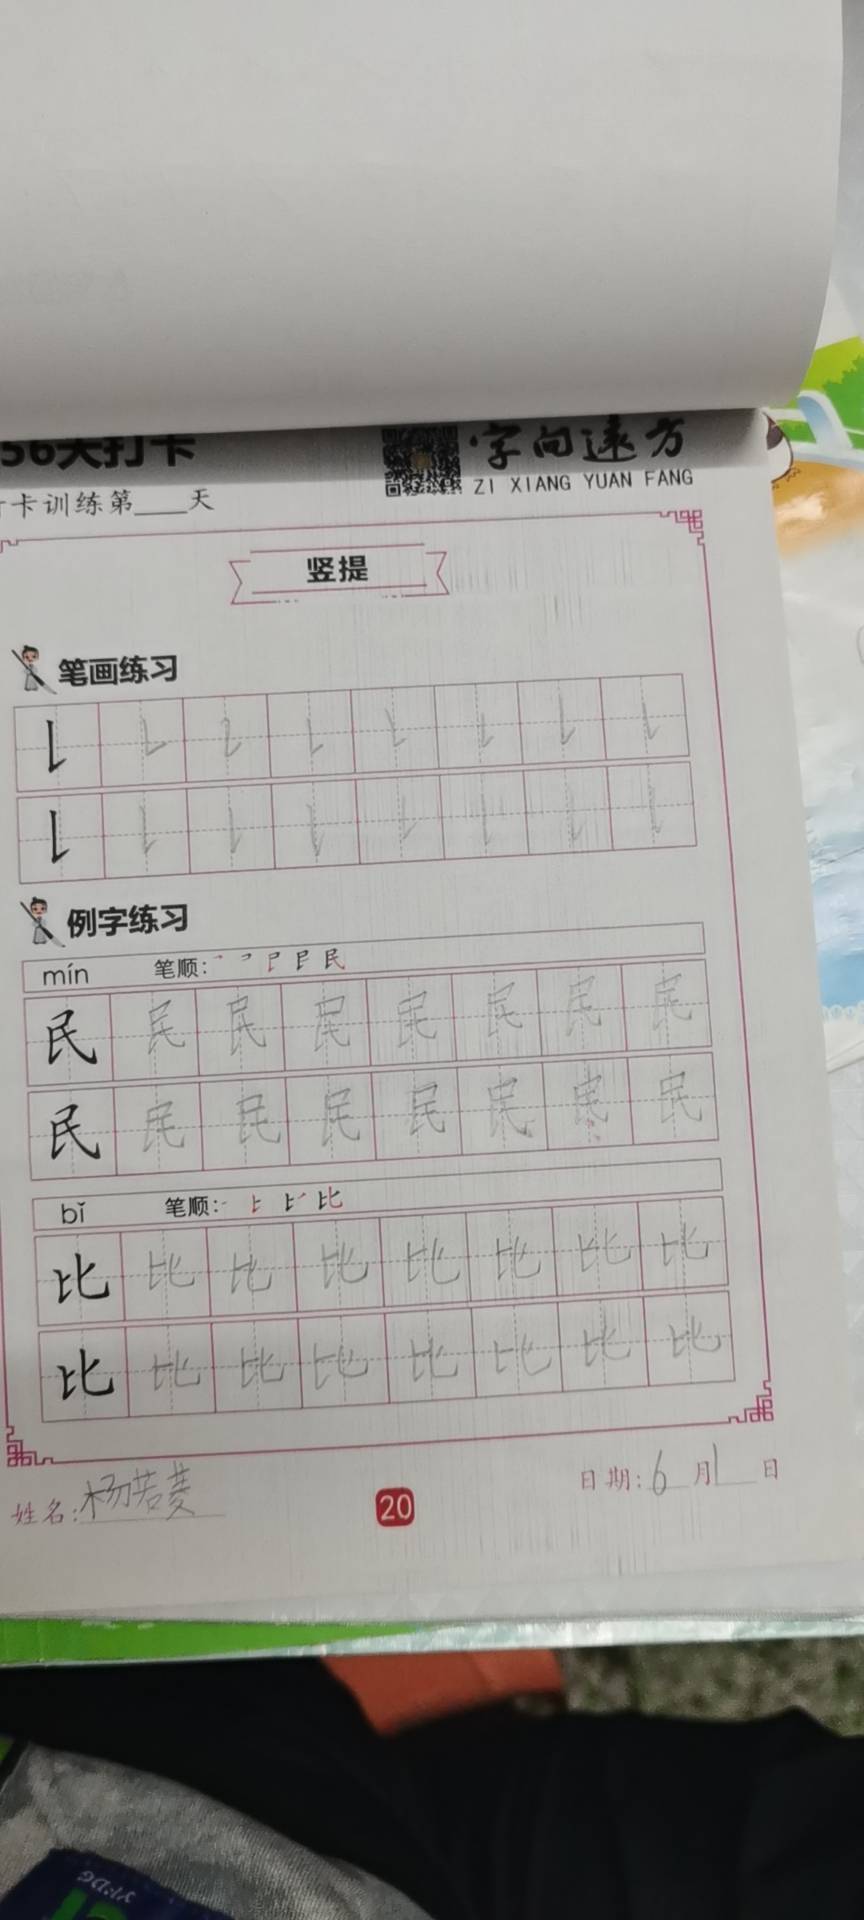 56天打卡
字向远方
卡训练第____天
ZI XIANG YUAN FANG
竖提
笔画练习
例字练习
mín 笔顺:
民 民 民 民 民 民 民 民
民 民 民 民 民 民 民 民
bǐ 笔顺:
比 比 比 比 比 比 比 比
比 比 比 比 比 比 比 比
姓名:杨若菱
20
日期:6月1日